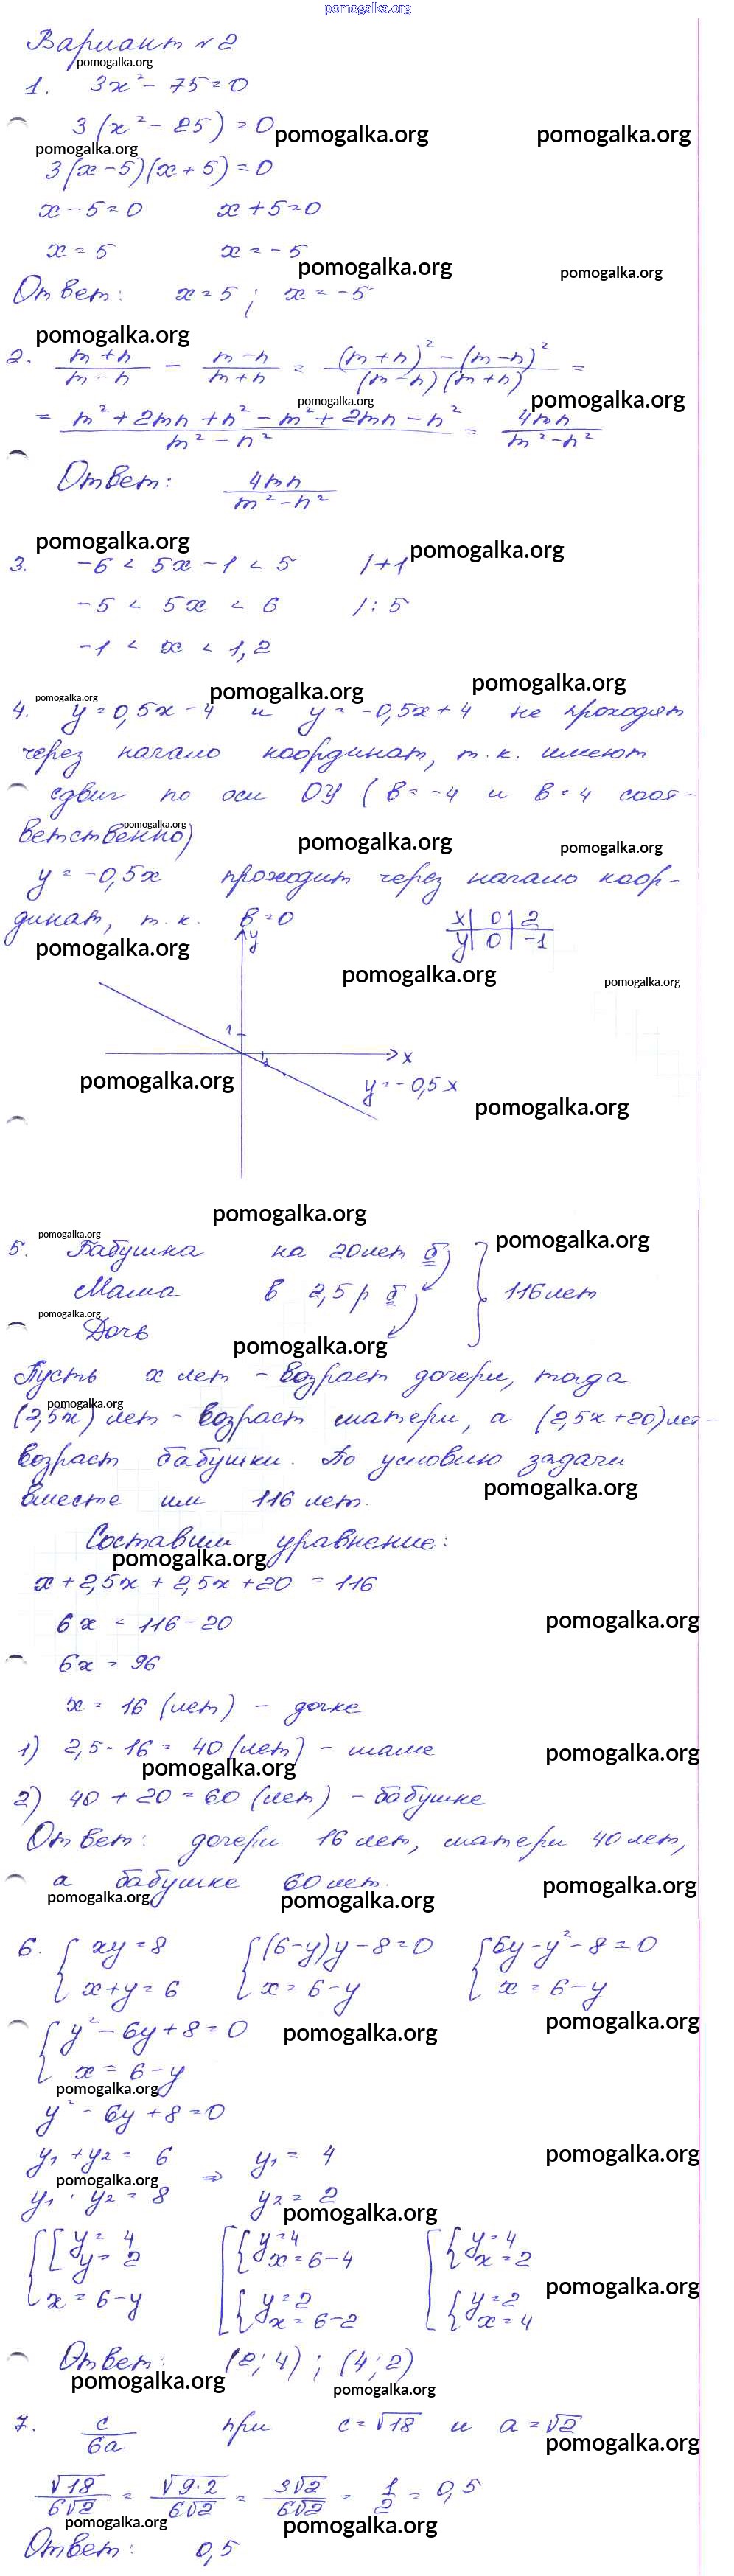 pomogalka.org
Вариант №2
pomogalka.org
1. 3x² - 75 = 0
3(x² - 25) = 0 pomogalka.org pomogalka.org
pomogalka.org
3(x - 5)(x + 5) = 0
x - 5 = 0 x + 5 = 0
x = 5 x = -5
pomogalka.org pomogalka.org
Ответ: x = 5; x = -5
pomogalka.org
2. (m+n)/(m-n) - (m-n)/(m+n) = ((m+n)² - (m-n)²)/((m-n)(m+n)) =
pomogalka.org pomogalka.org
= (m² + 2mn + n² - m² + 2mn - n²)/(m² - n²) = 4mn/(m² - n²)
Ответ: 4mn/(m² - n²)
pomogalka.org pomogalka.org
3. -6 < 5x - 1 < 5 /+1
-5 < 5x < 6 /:5
-1 < x < 1,2
pomogalka.org pomogalka.org pomogalka.org
4. y = 0,5x - 4 и y = -0,5x + 4 не проходят
через начало координат, т.к. имеют
сдвиг по оси ОУ (в = -4 и в = 4 соот-
pomogalka.org
ветственно) pomogalka.org pomogalka.org
y = -0,5x проходит через начало коор-
динат, т.к. в = 0
x 0 2
y 0 -1
pomogalka.org pomogalka.org pomogalka.org
y
1
1
x
pomogalka.org y = -0,5x
pomogalka.org
pomogalka.org
pomogalka.org pomogalka.org
5. Бабушка на 20 лет б
Мама в 2,5 р б 116 лет
pomogalka.org
Дочь
pomogalka.org
Пусть x лет - возраст дочери, тогда
pomogalka.org
(2,5x) лет - возраст матери, а (2,5x + 20) лет -
возраст бабушки. По условию задачи
pomogalka.org
вместе им 116 лет.
Составим уравнение:
pomogalka.org
x + 2,5x + 2,5x + 20 = 116
6x = 116 - 20 pomogalka.org
6x = 96
x = 16 (лет) - дочке
1) 2,5 · 16 = 40 (лет) - маме pomogalka.org
pomogalka.org
2) 40 + 20 = 60 (лет) - бабушке
Ответ: дочери 16 лет, матери 40 лет,
а бабушке 60 лет. pomogalka.org
pomogalka.org pomogalka.org
6. { xy = 8 { (6-y)y - 8 = 0 { 6y - y² - 8 = 0
x + y = 6 x = 6 - y x = 6 - y
pomogalka.org
{ y² - 6y + 8 = 0 pomogalka.org
x = 6 - y
pomogalka.org
y² - 6y + 8 = 0
y₁ + y₂ = 6 y₁ = 4 pomogalka.org
pomogalka.org ⇒
y₁ · y₂ = 8 y₂ = 2
pomogalka.org
{ [ y = 4 [ { y = 4 [ { y = 4
y = 2 x = 6 - 4 x = 2
pomogalka.org
x = 6 - y { y = 2 { y = 2
x = 6 - 2 x = 4
Ответ: (2; 4); (4; 2)
pomogalka.org pomogalka.org
7. c/6a при c = √18 и a = √2
pomogalka.org
√18/6√2 = √9·2/6√2 = 3√2/6√2 = 1/2 = 0,5
pomogalka.org pomogalka.org
Ответ: 0,5